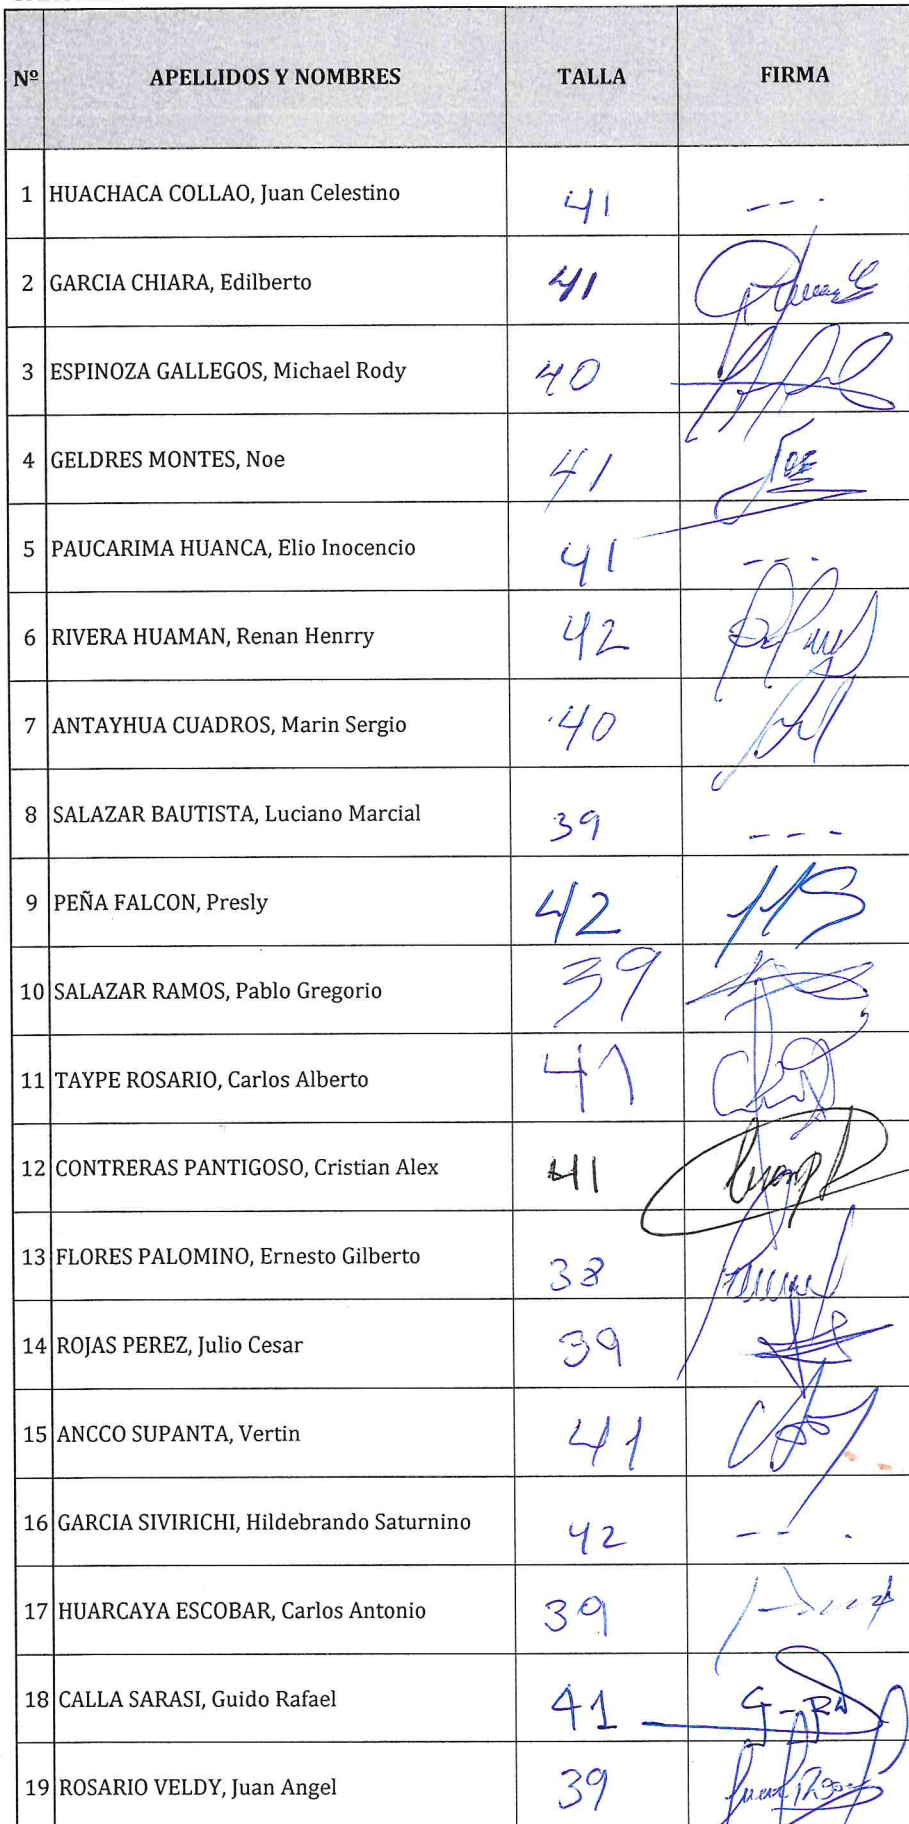 Nº APELLIDOS Y NOMBRES TALLA FIRMA
1 HUACHACA COLLAO, Juan Celestino 41 ---
2 GARCIA CHIARA, Edilberto 41
3 ESPINOZA GALLEGOS, Michael Rody 40
4 GELDRES MONTES, Noe 41
5 PAUCARIMA HUANCA, Elio Inocencio 41 ---
6 RIVERA HUAMAN, Renan Henrry 42
7 ANTAYHUA CUADROS, Marin Sergio 40
8 SALAZAR BAUTISTA, Luciano Marcial 39 ---
9 PEÑA FALCON, Presly 42
10 SALAZAR RAMOS, Pablo Gregorio 39
11 TAYPE ROSARIO, Carlos Alberto 41
12 CONTRERAS PANTIGOSO, Cristian Alex 41
13 FLORES PALOMINO, Ernesto Gilberto 38
14 ROJAS PEREZ, Julio Cesar 39
15 ANCCO SUPANTA, Vertin 41
16 GARCIA SIVIRICHI, Hildebrando Saturnino 42 ---
17 HUARCAYA ESCOBAR, Carlos Antonio 39
18 CALLA SARASI, Guido Rafael 41
19 ROSARIO VELDY, Juan Angel 39